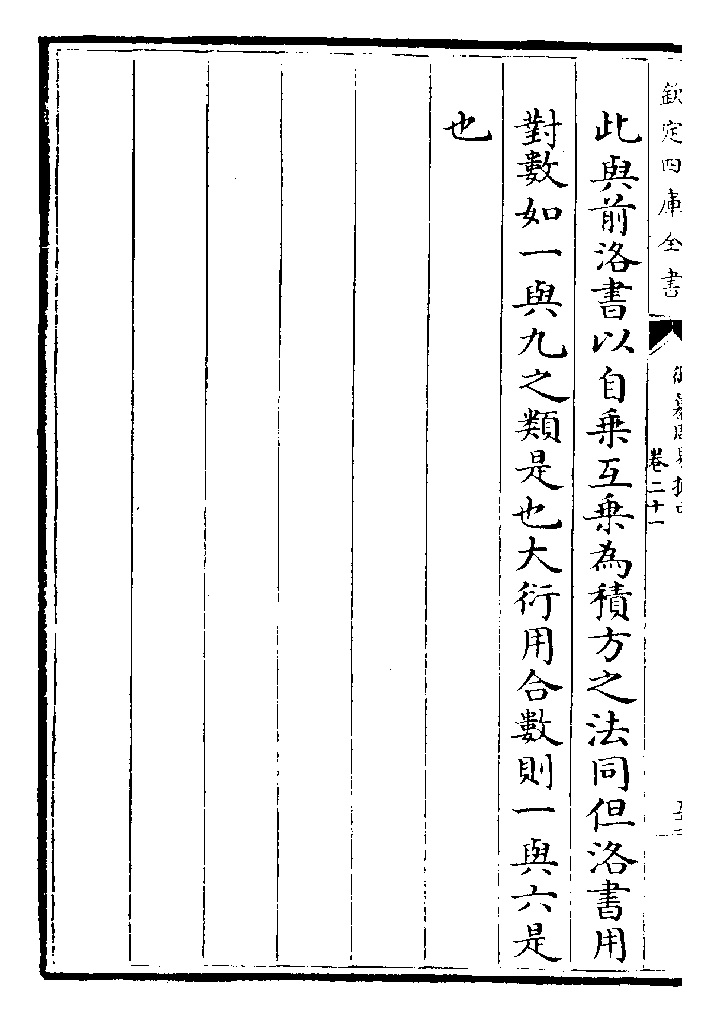 欽定四庫全書
卷二十一
此與前洛書以自乗互乗為積方之法同但洛書用
對數如一與九之類是也大衍用合數則一與六是
也